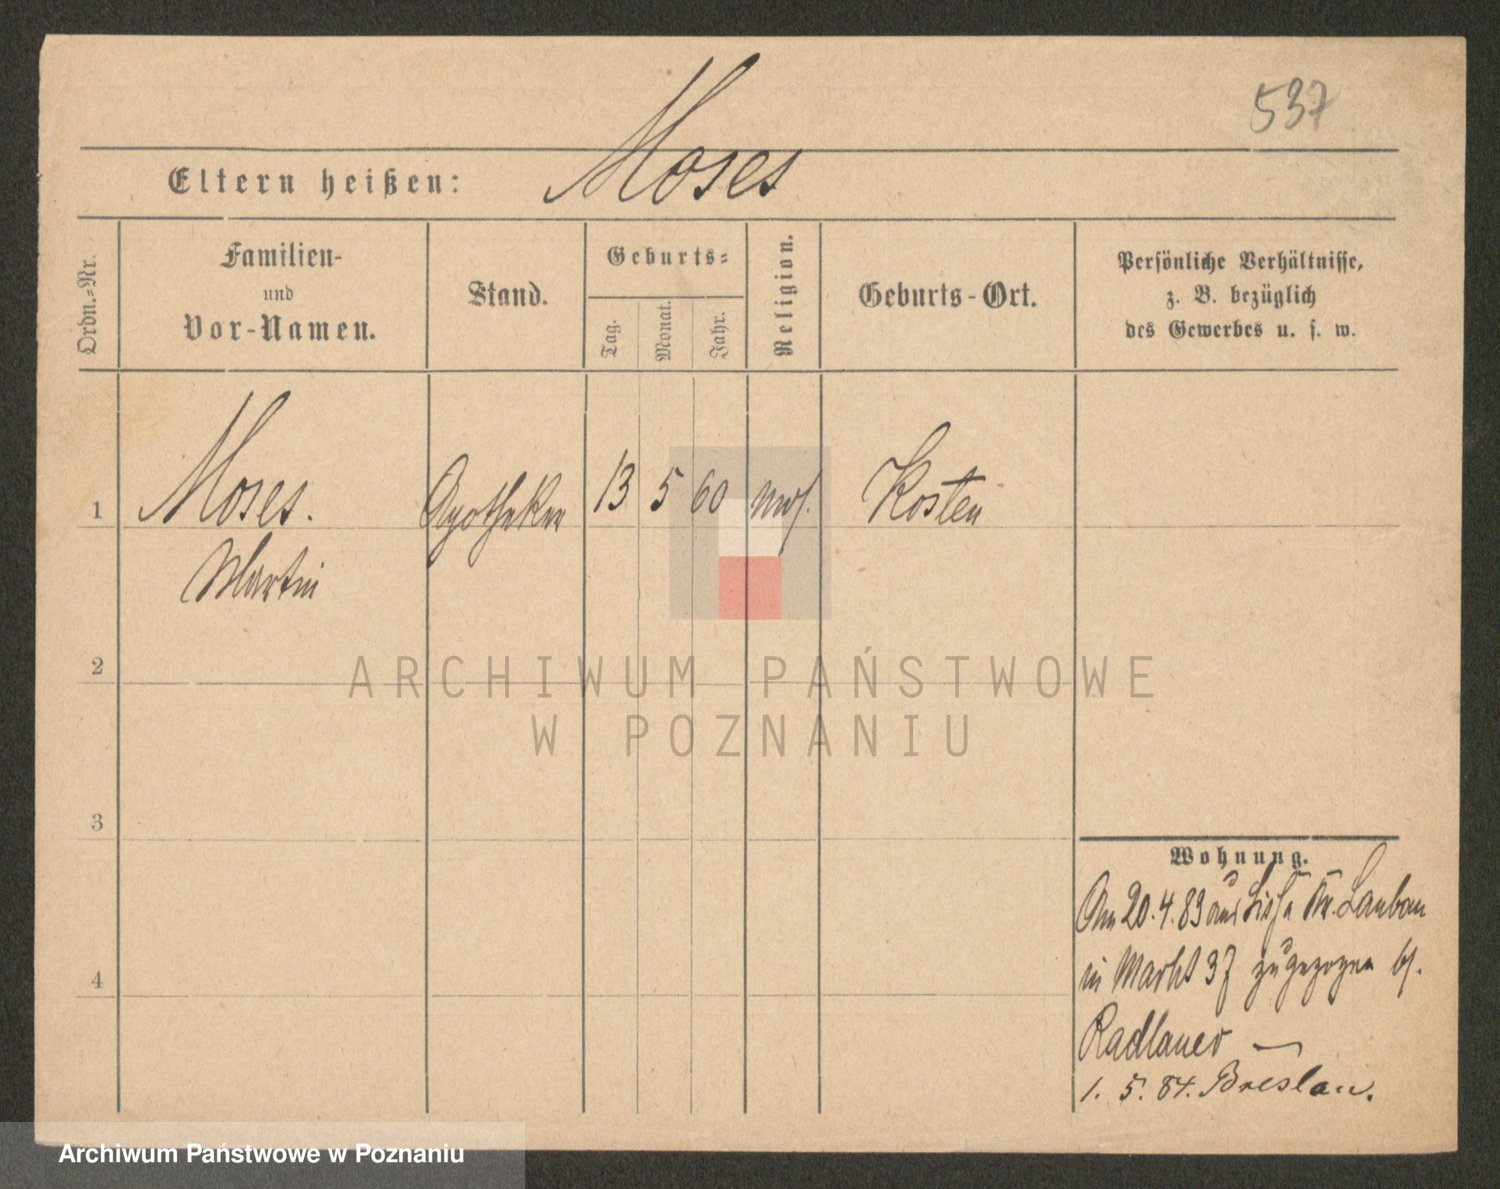 537
Moses
Eltern heißen:
Ordn.-Nr.
Familien-
und
Vor-Namen.
Stand.
Geburts-
Tag.
Monat.
Jahr.
Religion.
Geburts-Ort.
Persönliche Verhältnisse,
z. B. bezüglich
des Gewerbes u. s. w.
1 Moses. Apotheker 13 5 60 mos. Kosten
Martin
2
3
4
Wohnung.
Am 20.4.83 aus Lissa Kr. Lauban
in Markt 37 zugezogen bf.
Radlauer —
1. 5. 84. Breslau.
ARCHIWUM PAŃSTWOWE
W POZNANIU
Archiwum Państwowe w Poznaniu